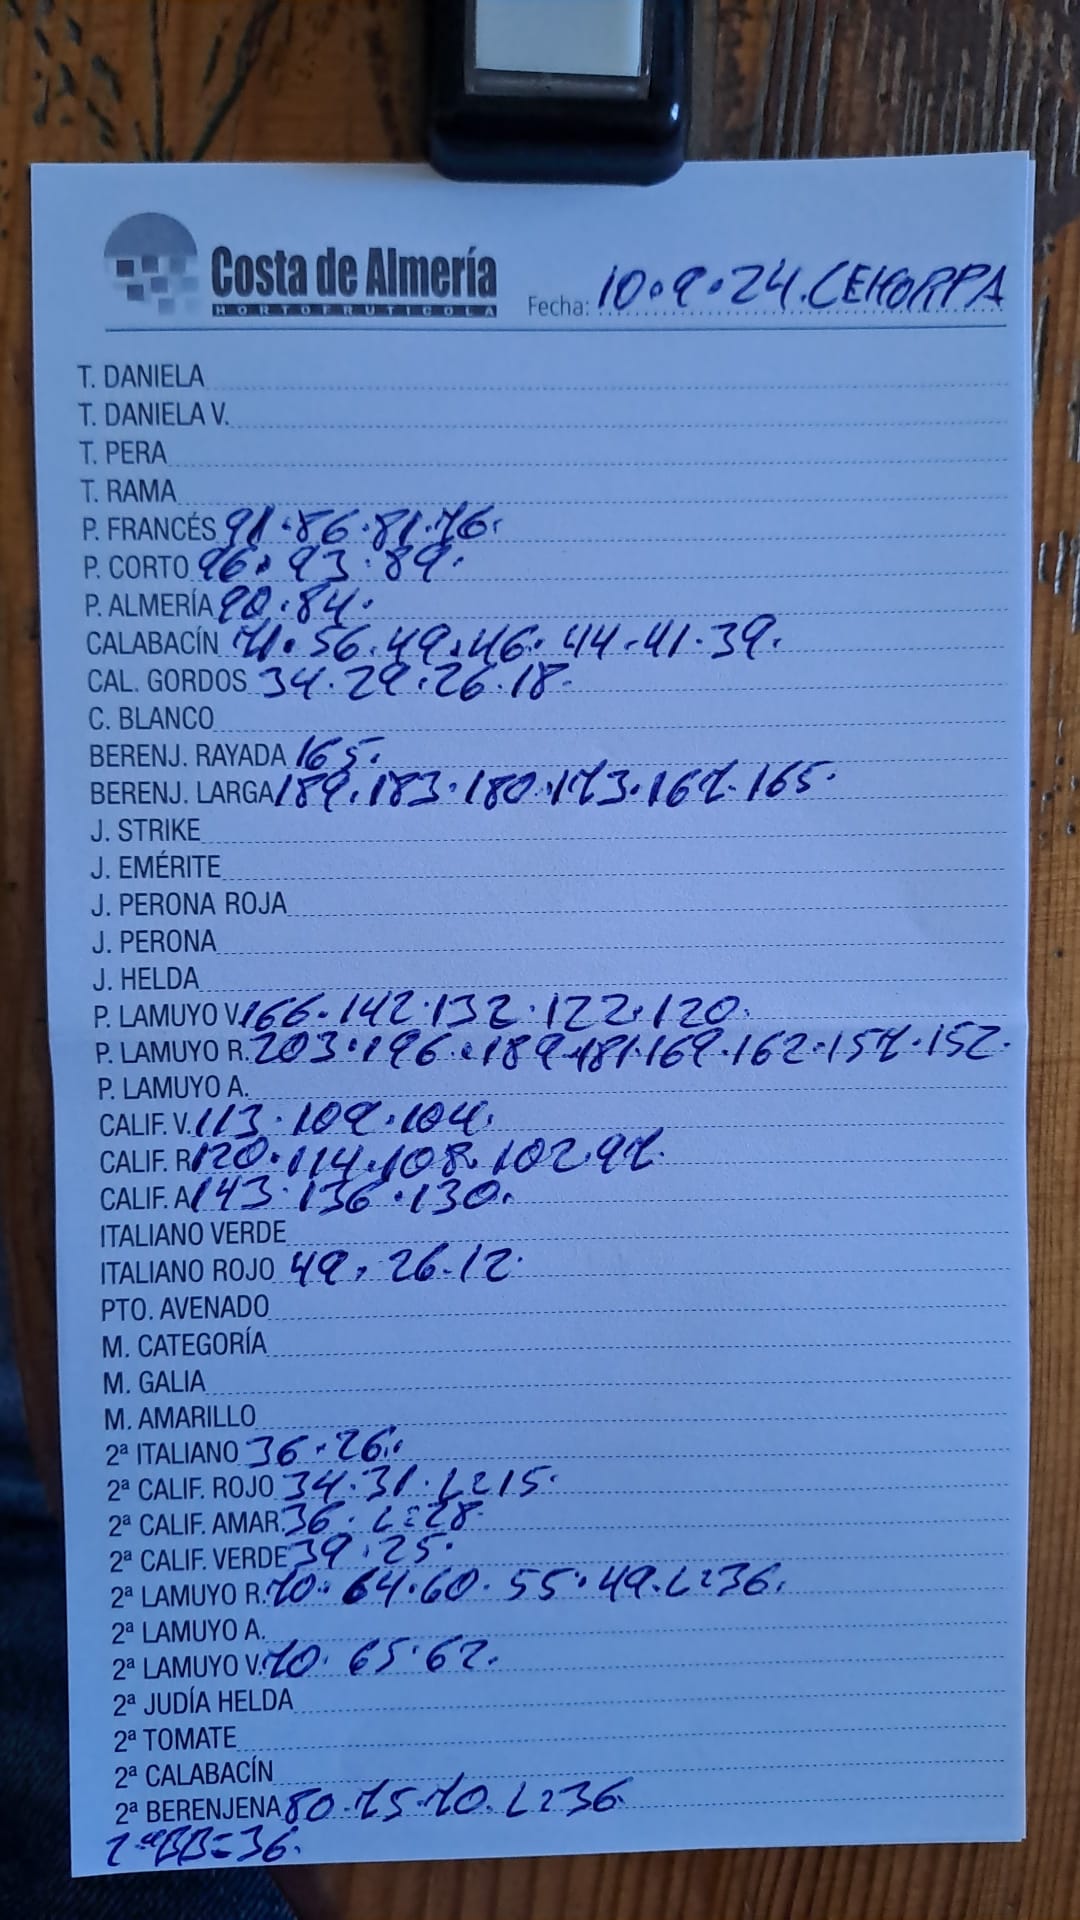 Costa de Almería
HORTOFRUTICOLA
Fecha: 10.9.24. CEHORPA
T. DANIELA
T. DANIELA V.
T. PERA
T. RAMA
P. FRANCÉS 91.86.81.76.
P. CORTO 96.93.89.
P. ALMERÍA 90.84.
CALABACÍN 71.56.49.46.44.41.39.
CAL. GORDOS 34.29.26.18.
C. BLANCO
BERENJ. RAYADA 165.
BERENJ. LARGA 189.183.180.173.167.165.
J. STRIKE
J. EMÉRITE
J. PERONA ROJA
J. PERONA
J. HELDA
P. LAMUYO V. 166.142.132.122.120.
P. LAMUYO R. 203.196.189.181.169.162.157.152.
P. LAMUYO A.
CALIF. V. 113.109.104.
CALIF. R 120.114.108.102.97.
CALIF. A 143.136.130.
ITALIANO VERDE
ITALIANO ROJO 49.26.12.
PTO. AVENADO
M. CATEGORÍA
M. GALIA
M. AMARILLO
2ª ITALIANO 36.26.
2ª CALIF. ROJO 34.31.L=15.
2ª CALIF. AMAR. 36.L=28.
2ª CALIF. VERDE 39.25.
2ª LAMUYO R. 70.64.60.55.49.L=36.
2ª LAMUYO A.
2ª LAMUYO V. 70.65.62.
2ª JUDÍA HELDA
2ª TOMATE
2ª CALABACÍN
2ª BERENJENA 80.75.70.L=36
2ªBB=36.